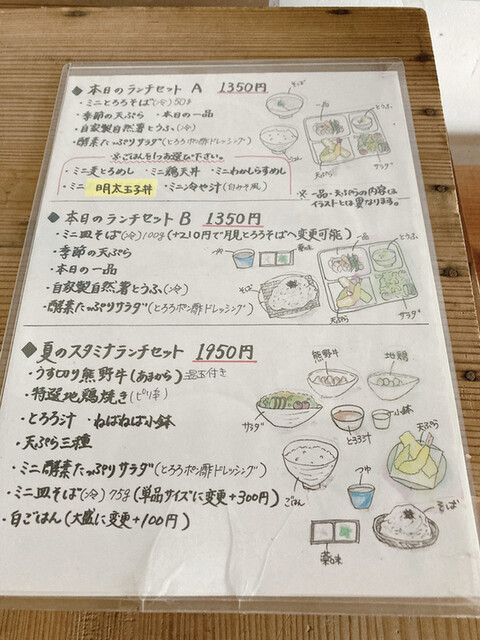 ◆ 本日のランチセット A 1350円
・ミニとろろそば(冷) 50g
・季節の天ぷら ・本日の一品
・自家製自然薯とうふ(冷)
・酵素たっぷりサラダ(とろろポン酢ドレッシング)
※ごはんを1つお選び下さい。
・ミニ麦とろめし ・ミニ鶏天丼 ・ミニわかしらすめし
・ミニ 明太玉子丼 ・ミニ冷や汁(白みそ風)
そば
一品
とうふ
天ぷら
サラダ
※一品・天ぷらの内容は
イラストとは異なります。
◆ 本日のランチセット B 1350円
・ミニ皿そば(冷)100g(+210円で月見とろろそばへ変更可能)
・季節の天ぷら
・本日の一品
・自家製自然薯とうふ(冷)
・酵素たっぷりサラダ(とろろポン酢ドレッシング)
つゆ
薬味
一品
とうふ
そば
天ぷら
サラダ
◆ 夏のスタミナランチセット 1950円
・うす切り熊野牛(あまから)温玉付き
・特選地鶏焼き(ピリ辛)
・とろろ汁 ・ねばねば小鉢
・天ぷら三種
・ミニ酵素たっぷりサラダ(とろろポン酢ドレッシング)
・ミニ皿そば(冷) 75g (単品サイズに変更+300円)
・白ごはん(大盛に変更+100円)
熊野牛
地鶏
サラダ
とろろ汁
小鉢
天ぷら
ごはん
つゆ
そば
薬味